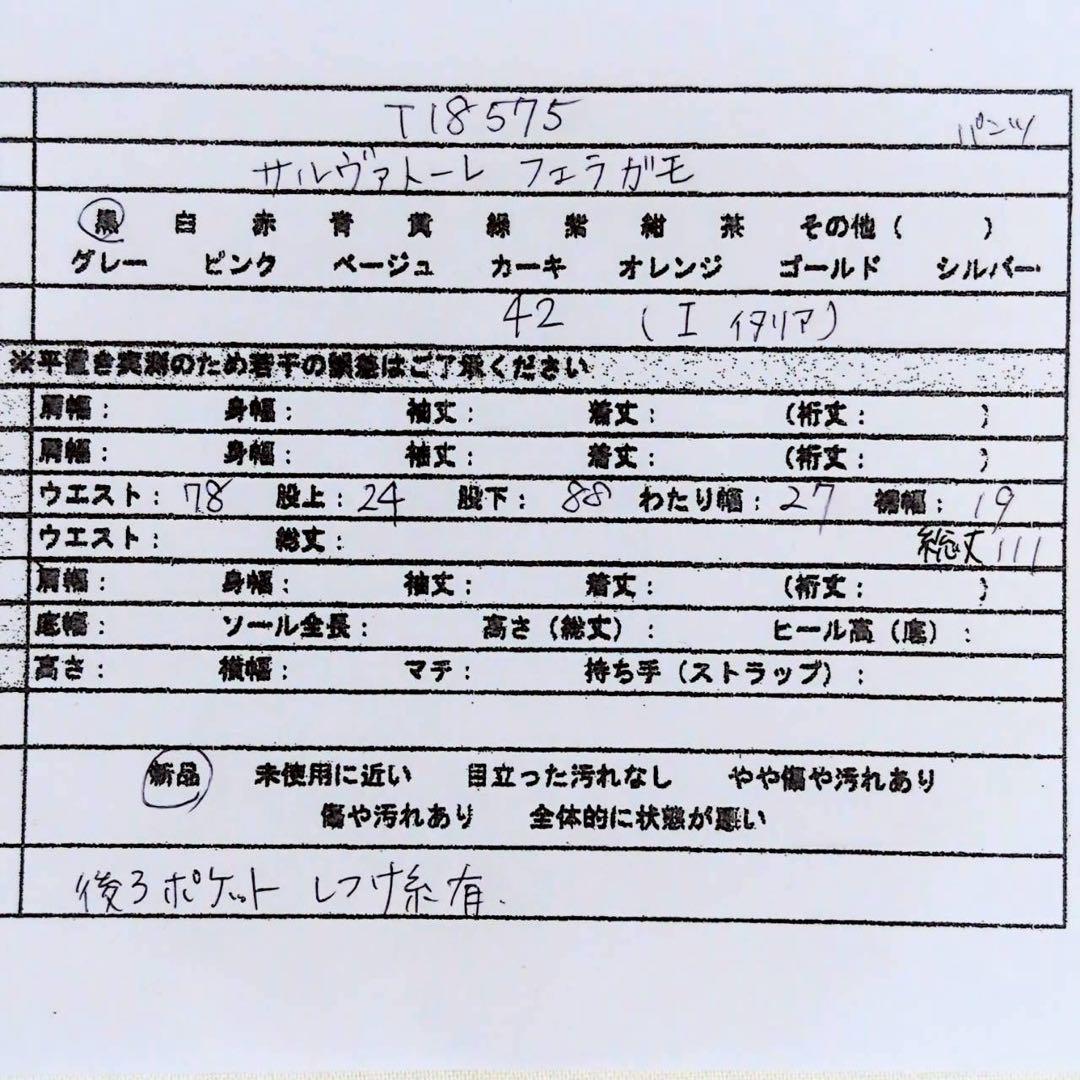 T18575 パンツ
サルヴァトーレ フェラガモ
黒 白 赤 青 黄 緑 紫 紺 茶 その他（ ）
グレー ピンク ベージュ カーキ オレンジ ゴールド シルバー
42 （I イタリア）
※平置き実測のため若干の誤差はご了承ください
肩幅： 身幅： 袖丈： 着丈： （裄丈： ）
肩幅： 身幅： 袖丈： 着丈： （裄丈： ）
ウエスト：78 股上：24 股下：88 わたり幅：27 裾幅：19
ウエスト： 総丈： 総丈111
肩幅： 身幅： 袖丈： 着丈： （裄丈： ）
底幅： ソール全長： 高さ（総丈）： ヒール高（底）：
高さ： 横幅： マチ： 持ち手（ストラップ）：
新品 未使用に近い 目立った汚れなし やや傷や汚れあり
傷や汚れあり 全体的に状態が悪い
後ろポケット しつけ糸有.